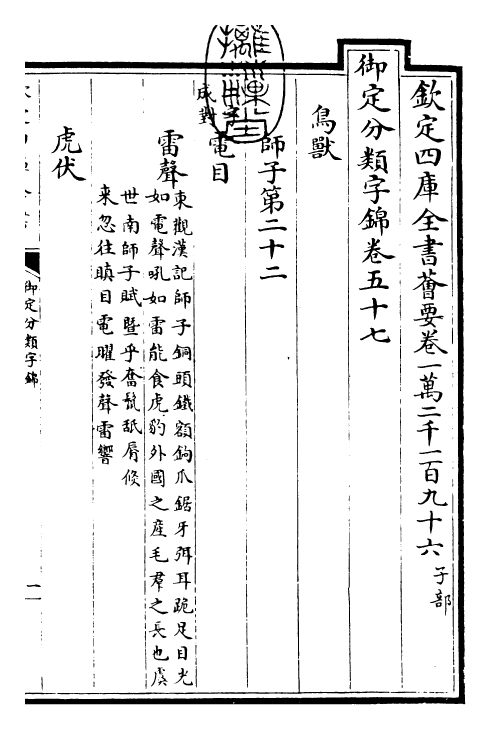 欽定四庫全書薈要卷一萬二千一百九十六 子部
御定分類字錦卷五十七
鳥獸
師子第二十二
成對
電目
雷聲 東觀漢記師子銅頭鐵額鉤爪鋸牙弭耳跪足目光
如電聲吼如雷能食虎豹外國之産毛羣之長也虞
世南師子賦曁乎奮鬛舐脣倏
来忽往瞋目電曜發聲雷響
虎伏
御定分類字錦
一